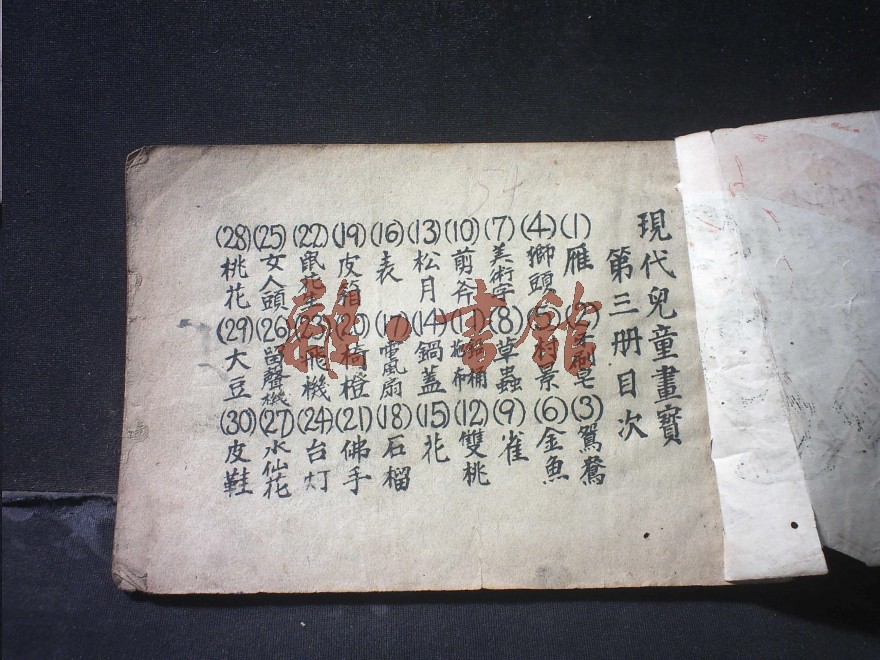 現代兒童畫寶
第三册目次
(1)雁 (2)牙刷皂 (3)鴛鴦
(4)獅頭 (5)村景 (6)金魚
(7)美術字 (8)草蟲 (9)雀
(10)剪斧 (11)拖布 (12)雙桃
(13)松月 (14)鍋蓋 (15)花
(16)表 (17)電風扇 (18)石榴
(19)皮箱 (20)椅橙 (21)佛手
(22)鼠花生 (23)飛機 (24)台灯
(25)女人頭 (26)留聲機 (27)水仙花
(28)桃花 (29)大豆 (30)皮鞋
雜·書館
54